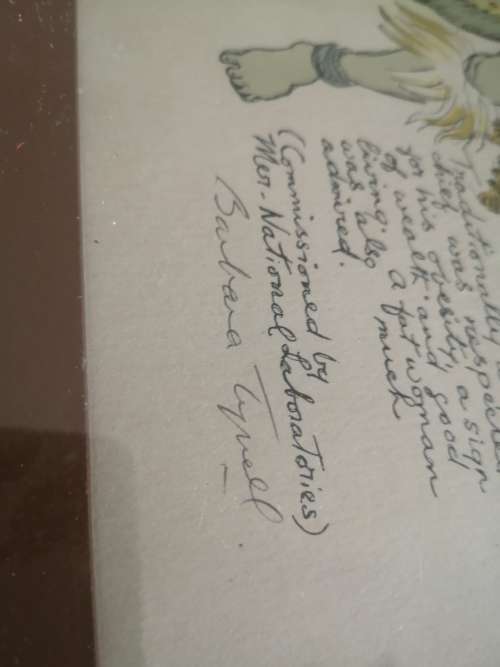 Traditionally a
chief was respected
for his obesity, a sign
of wealth and good
living: also a fat woman
was much
admired.
(Commissioned by
Mer-National Laboratories)
Barbara Tyrrell